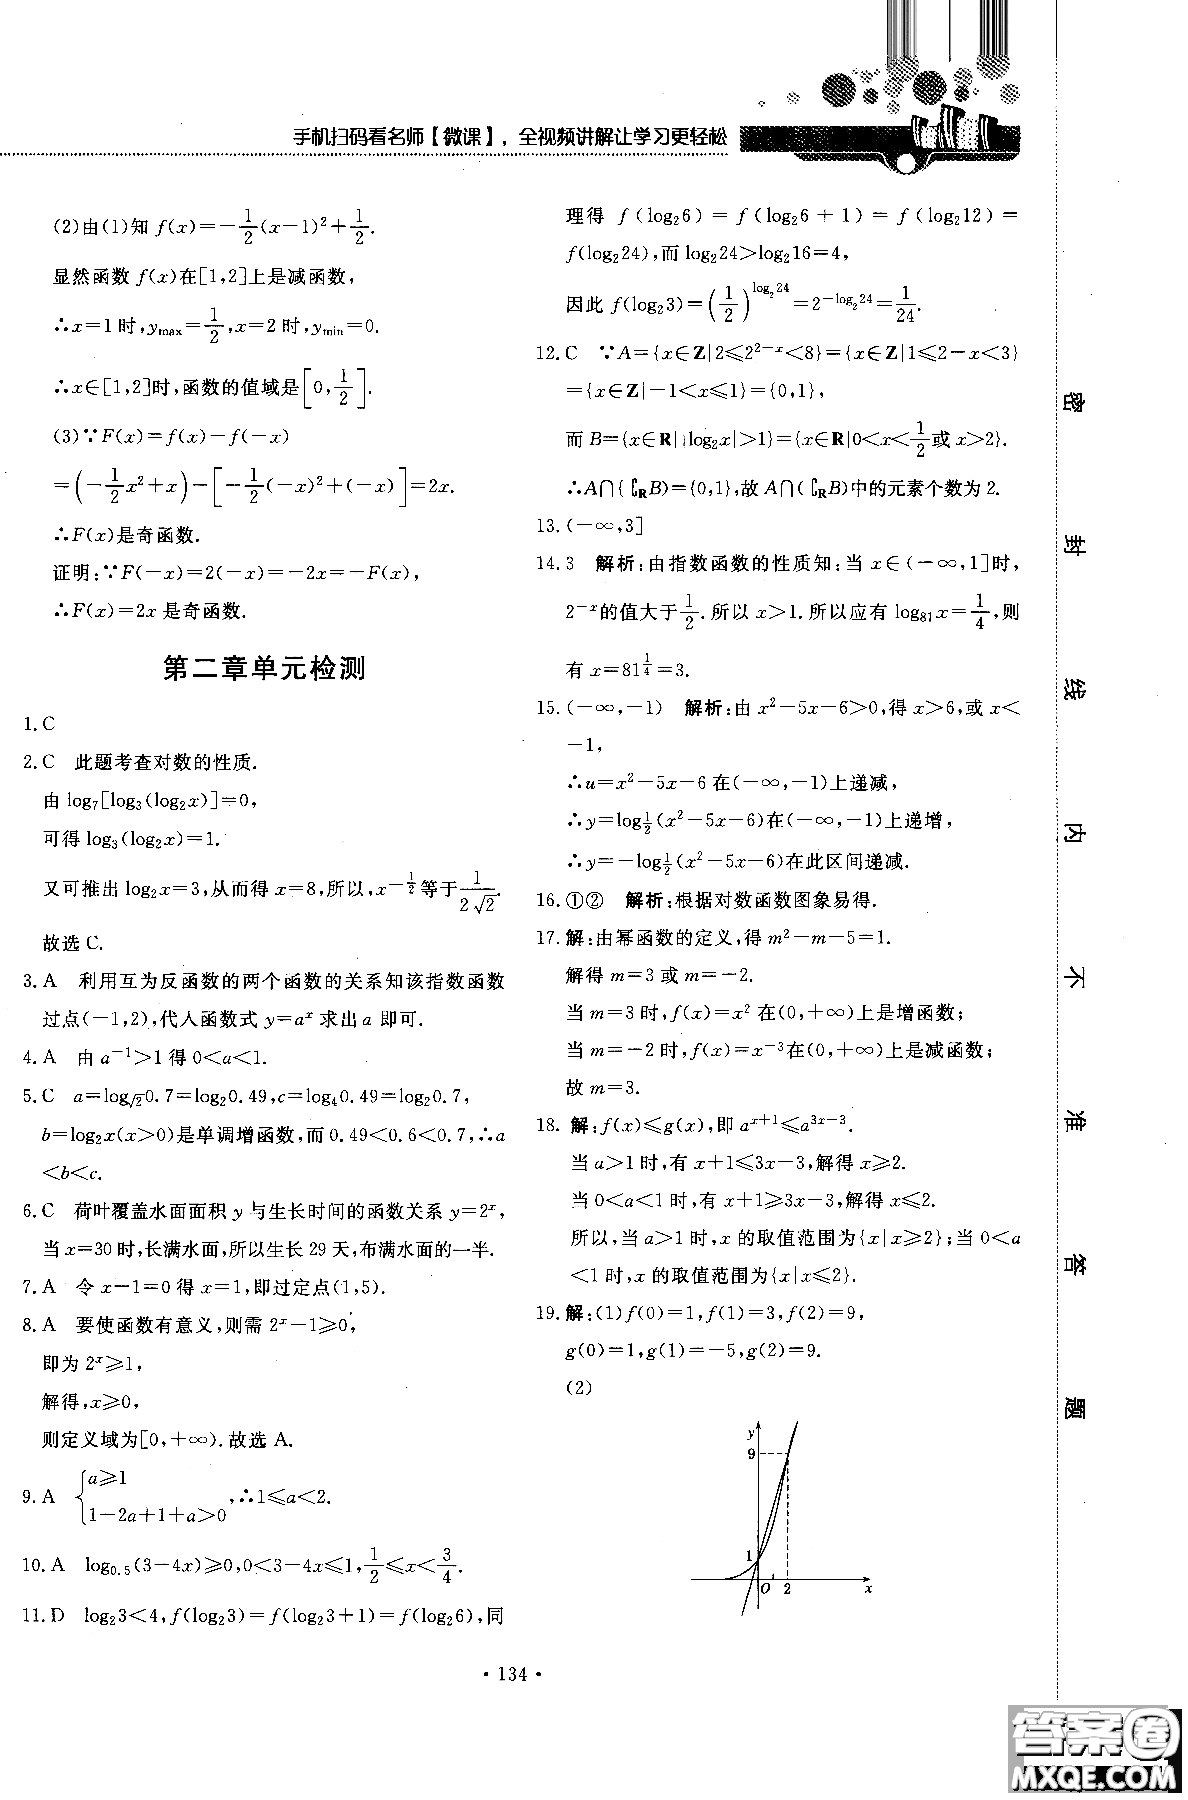 手机扫码看名师【微课】，全视频讲解让学习更轻松
(2)由(1)知 f(x)=-1/2(x-1)²+1/2.
显然函数 f(x)在[1,2]上是减函数,
∴x=1时,y_max=1/2,x=2时,y_min=0.
∴x∈[1,2]时,函数的值域是[0,1/2].
(3)∵F(x)=f(x)-f(-x)
=(-1/2x²+x)-[-1/2(-x)²+(-x)]=2x.
∴F(x)是奇函数.
证明:∵F(-x)=2(-x)=-2x=-F(x),
∴F(x)=2x是奇函数.
第二章单元检测
1.C
2.C 此题考查对数的性质.
由 log₇[log₃(log₂x)]=0,
可得 log₃(log₂x)=1.
又可推出 log₂x=3,从而得 x=8,所以,x^(-1/2)等于1/(2√2).
故选 C.
3.A 利用互为反函数的两个函数的关系知该指数函数
过点(-1,2),代人函数式 y=aˣ 求出 a 即可.
4.A 由 a⁻¹>1得 0<a<1.
5.C a=log_√2 0.7=log₂0.49,c=log₄0.49=log₂0.7,
b=log₂x(x>0)是单调增函数,而 0.49<0.6<0.7,∴a
<b<c.
6.C 荷叶覆盖水面面积 y 与生长时间的函数关系 y=2ˣ,
当 x=30 时,长满水面,所以生长 29 天,布满水面的一半.
7.A 令 x-1=0 得 x=1,即过定点(1,5).
8.A 要使函数有意义,则需 2ˣ-1⩾0,
即为 2ˣ⩾1,
解得,x⩾0,
则定义域为[0,+∞).故选 A.
9.A {a⩾1
1-2a+1+a>0 ,∴1⩽a<2.
10.A log₀.₅(3-4x)⩾0,0<3-4x⩽1,1/2⩽x<3/4.
11.D log₂3<4,f(log₂3)=f(log₂3+1)=f(log₂6),同
理得 f(log₂6)=f(log₂6+1)=f(log₂12)=
f(log₂24),而 log₂24>log₂16=4,
因此 f(log₂3)=(1/2)^(log₂24)=2^(-log₂24)=1/24.
12.C ∵A={x∈Z|2⩽2²⁻ˣ<8}={x∈Z|1⩽2-x<3}
={x∈Z|-1<x⩽1}={0,1},
而 B={x∈R||log₂x|>1}={x∈R|0<x<1/2或 x>2}.
∴A∩(∁_R B)={0,1},故 A∩(∁_R B)中的元素个数为 2.
13.(-∞,3]
14.3 解析:由指数函数的性质知:当 x∈(-∞,1]时,
2⁻ˣ的值大于1/2.所以 x>1.所以应有 log₈₁x=1/4,则
有 x=81^(1/4)=3.
15.(-∞,-1) 解析:由 x²-5x-6>0,得 x>6,或 x<
-1,
∴u=x²-5x-6 在(-∞,-1)上递减,
∴y=log_(1/2)(x²-5x-6)在(-∞,-1)上递增,
∴y=-log_(1/2)(x²-5x-6)在此区间递减.
16.①② 解析:根据对数函数图象易得.
17.解:由幂函数的定义,得 m²-m-5=1.
解得 m=3 或 m=-2.
当 m=3 时,f(x)=x² 在(0,+∞)上是增函数;
当 m=-2 时,f(x)=x⁻³在(0,+∞)上是减函数;
故 m=3.
18.解:f(x)⩽g(x),即 aˣ⁺¹⩽a³ˣ⁻³.
当 a>1 时,有 x+1⩽3x-3,解得 x⩾2.
当 0<a<1 时,有 x+1⩾3x-3,解得 x⩽2.
所以,当 a>1 时,x 的取值范围为{x|x⩾2};当 0<a
<1 时,x 的取值范围为{x|x⩽2}.
19.解:(1)f(0)=1,f(1)=3,f(2)=9,
g(0)=1,g(1)=-5,g(2)=9.
(2)
y
9
1
O 2 x
密 封 线 内 不 准 答 题
· 134 ·
答案卷
MXQE.COM